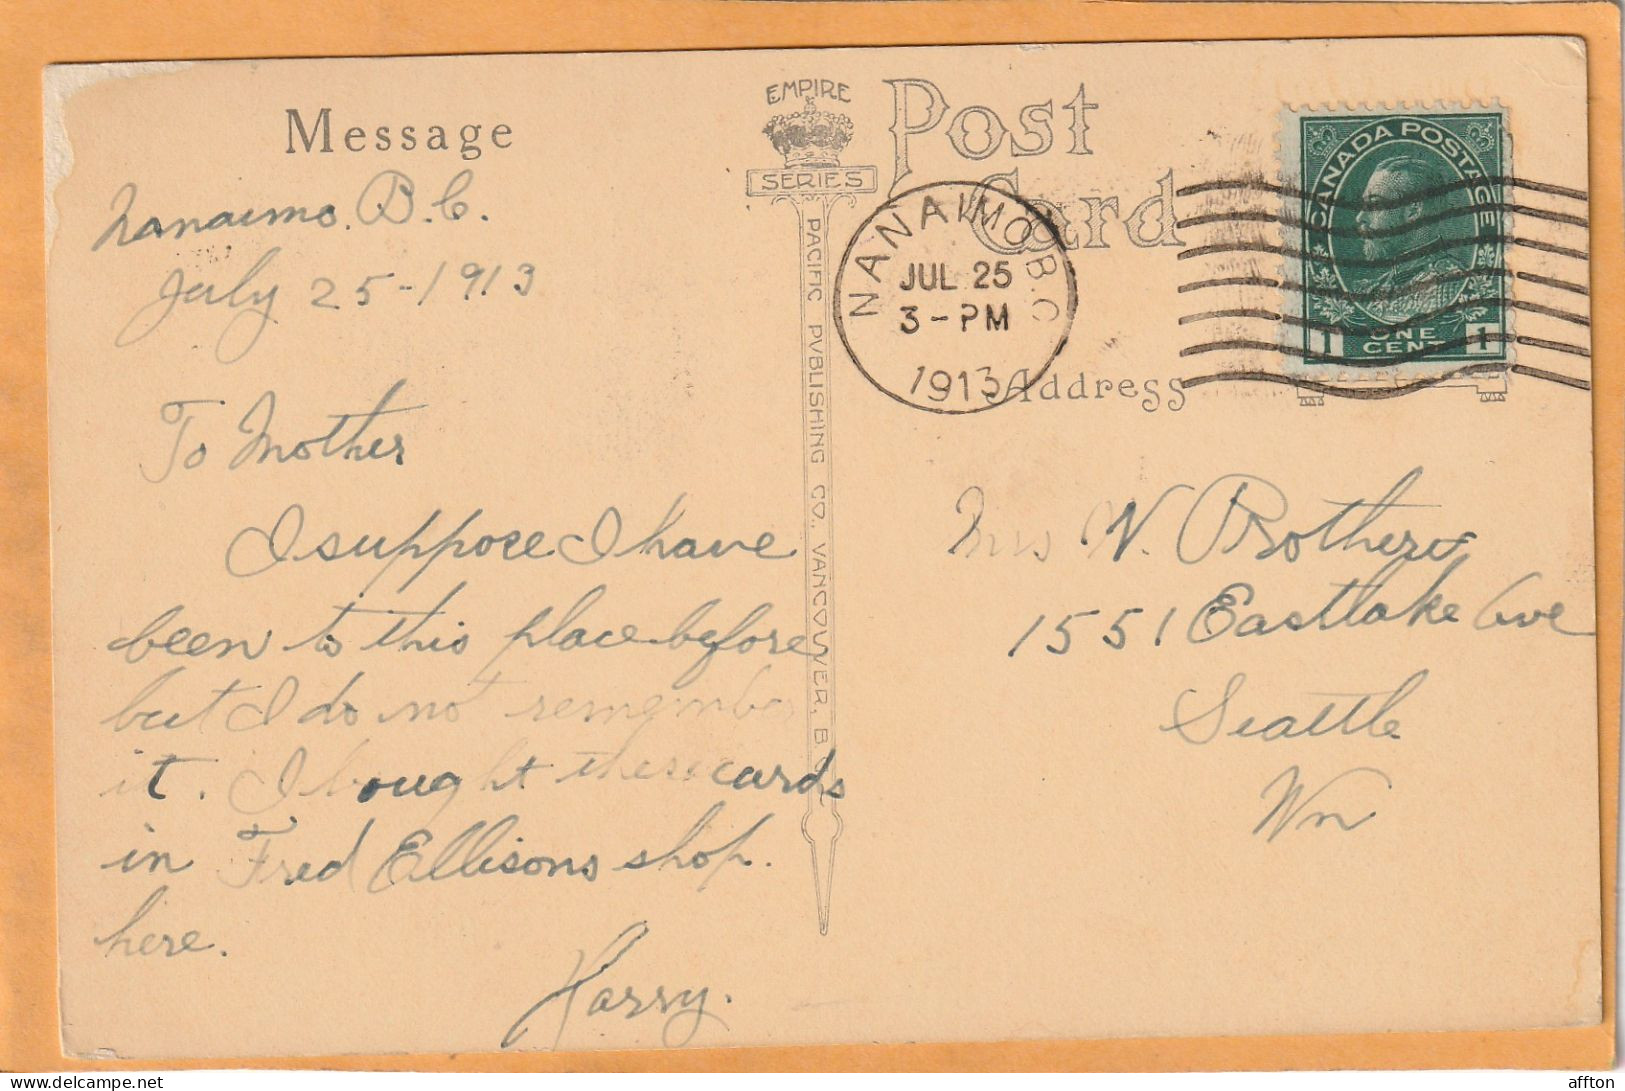 Message
Nanaimo. B.C.
July 25-1913
To Mother
I suppose I have
been to this place before
but I do not remember
it. I bought these cards
in Fred Ellisons shop.
here.
Harry.
EMPIRE
SERIES
PACIFIC PVBLISHING CO., VANCOUVER, B.C.
Post
Card
NANAIMO B.C.
JUL 25
3-PM
1913
CANADA POSTAGE
1 ONE CENT 1
Address
Mrs W. Brothers
1551 Eastlake Ave
Seattle
Wn
affton